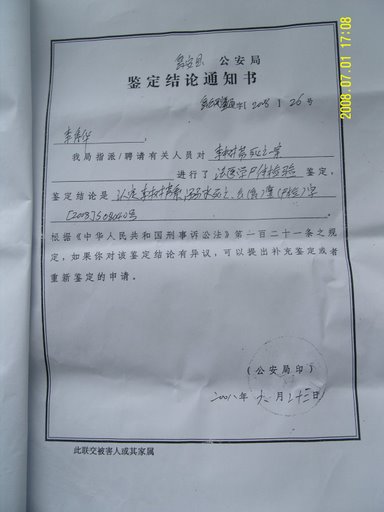 2008.07.01 17:08
瓮安县 公安局
鉴定结论通知书
字[2008]26号
李秀华
我局指派/聘请有关人员对 李树芬死亡一案
进行了 法医学尸体检验 鉴定,
鉴定结论是 认定李树芬系溺水死亡
[2008]
根据《中华人民共和国刑事诉讼法》第一百二十一条之规
定,如果你对该鉴定结论有异议,可以提出补充鉴定或者
重新鉴定的申请。
(公安局印)
2008年 六 月 二十三日
此联交被害人或其家属